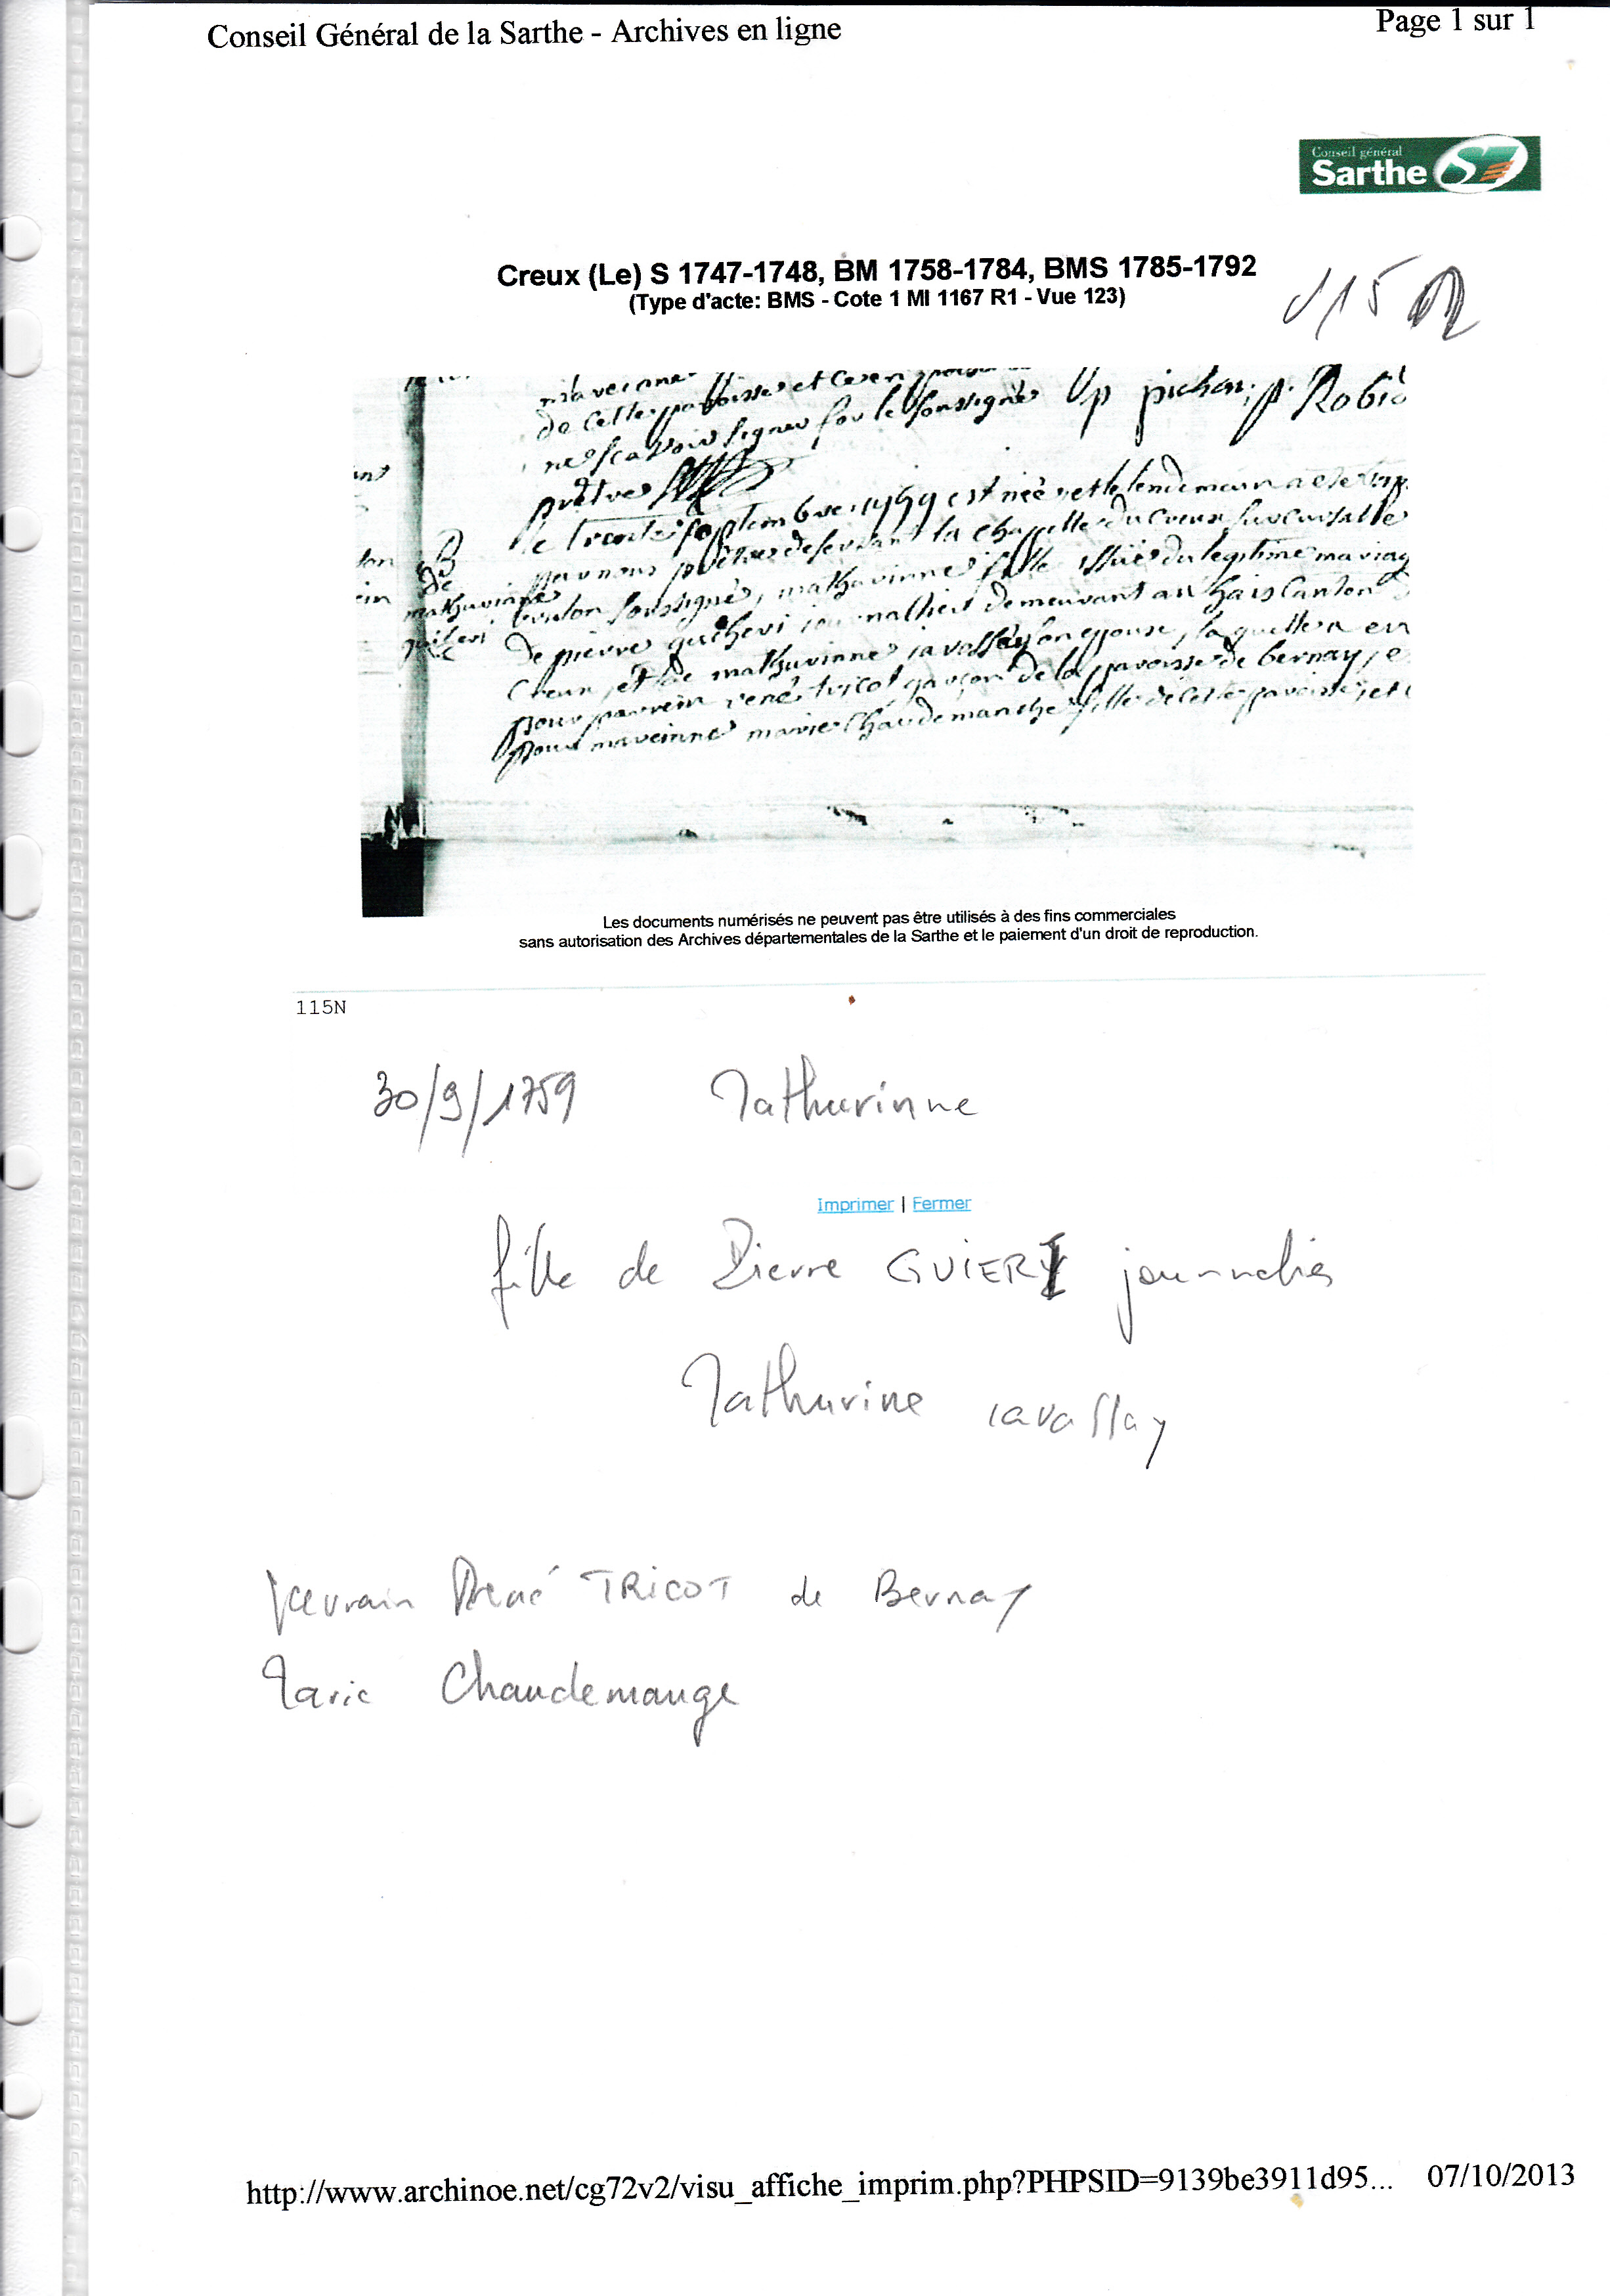 Conseil Général de la Sarthe - Archives en ligne
Page 1 sur 1
Conseil général
Sarthe
Creux (Le) S 1747-1748, BM 1758-1784, BMS 1785-1792
(Type d'acte: BMS - Cote 1 MI 1167 R1 - Vue 123)
115 N
de cette paroisse et
ne scavoir signer for le soussigné p pichon; p. Robi
prêtre
le trente septembre 1759 est née et le lendemain a ete
par nous prêtre deservant la chapelle du Creux succursalle
B
de
mathurinne
soussigné, mathurinne fille issüe du legitime mariag
de pierre guiheri journallier demeurant au hais Canton
Creux, et de mathurinne iavallay son epouse, laquelle a eu
pour parrein rené tricot garçon de la paroisse de bernay, e
pour mareinne marie Chaudemanche fille de cette paroisse, et
Les documents numérisés ne peuvent pas être utilisés à des fins commerciales
sans autorisation des Archives départementales de la Sarthe et le paiement d'un droit de reproduction.
115N
30/9/1759 Mathurinne
Imprimer | Fermer
fille de Pierre GUIERY journalier
Mathurine iavallay
parrain René TRICOT de Bernay
Marie Chaudemange
http://www.archinoe.net/cg72v2/visu_affiche_imprim.php?PHPSID=9139be3911d95... 07/10/2013